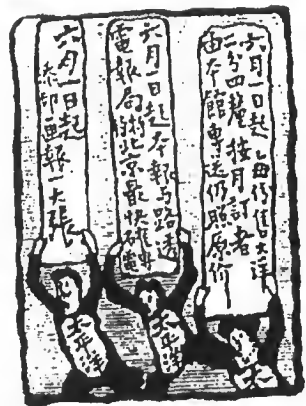 六月一日起每份售大洋
二分四釐按月訂者
由本館專送仍照原价
六月一日起本報与路透
電報局訂北京最快確專電
六月一日起
添印画報一大張
太平洋
太平洋
太